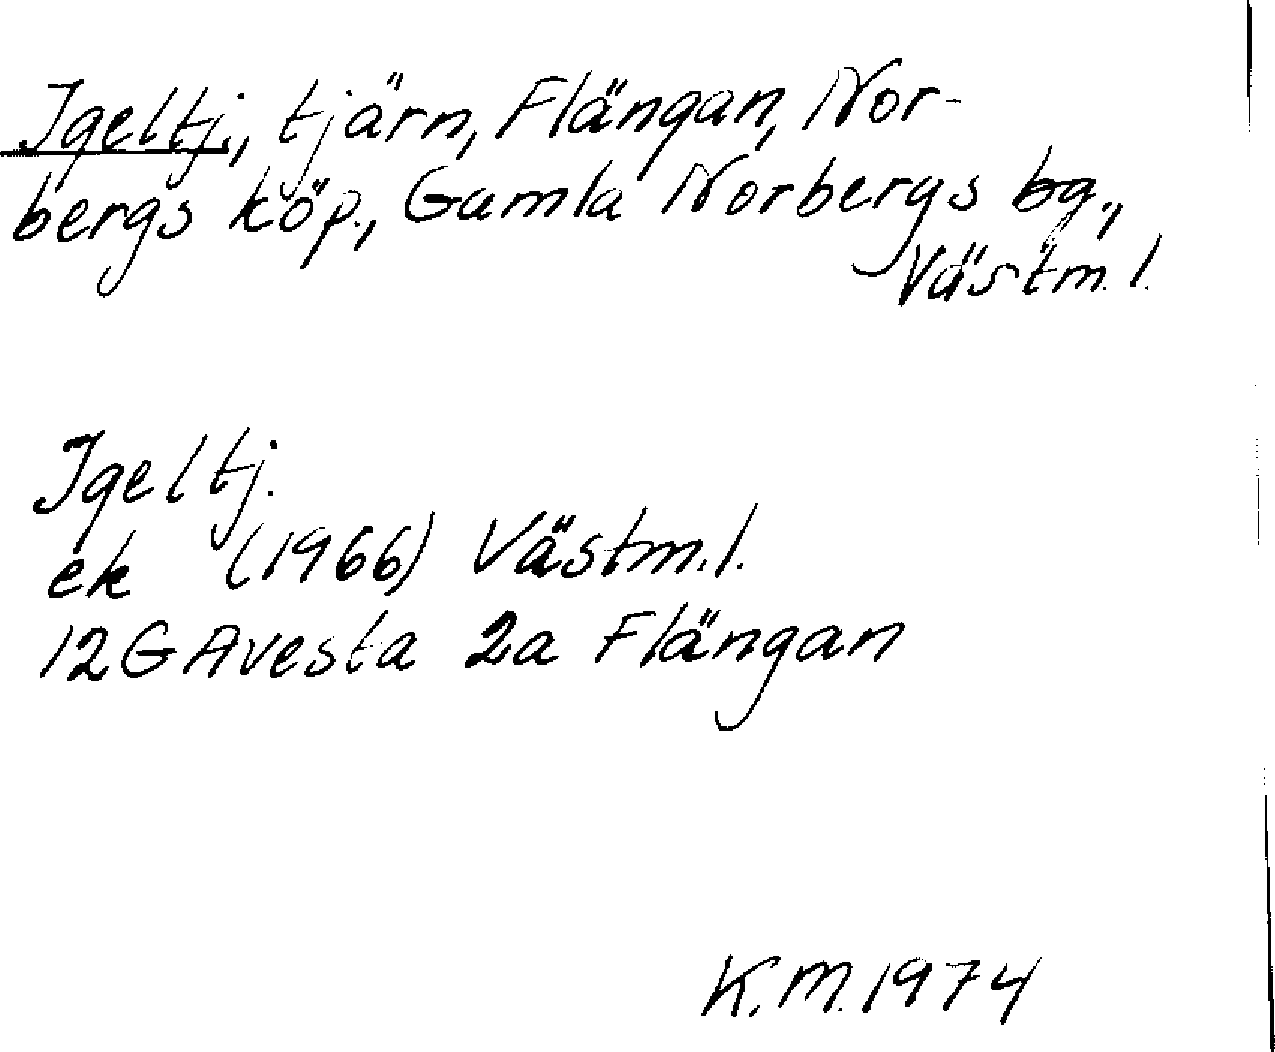 Igeltj., tjärn, Flängan, Nor-
bergs köp., Gamla Norbergs bg.,
Västm. l.
Igeltj.
ek (1966) Västm.l.
12G Avesta 2a Flängan
K.M.1974